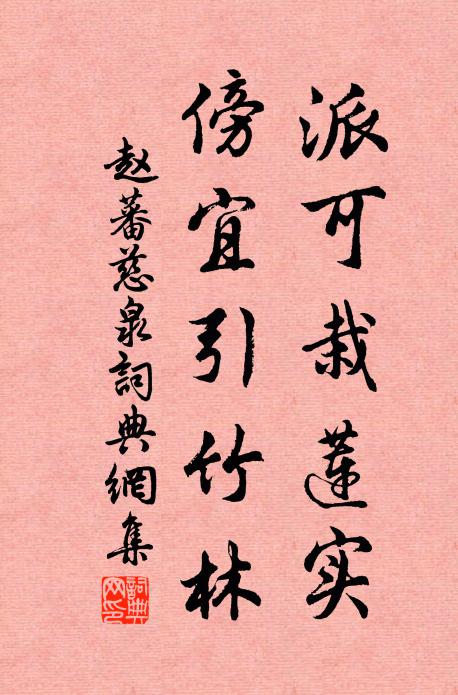 派可栽蓮实
傍宜引竹林
赵蕃慈泉詞典網集
詞典网印